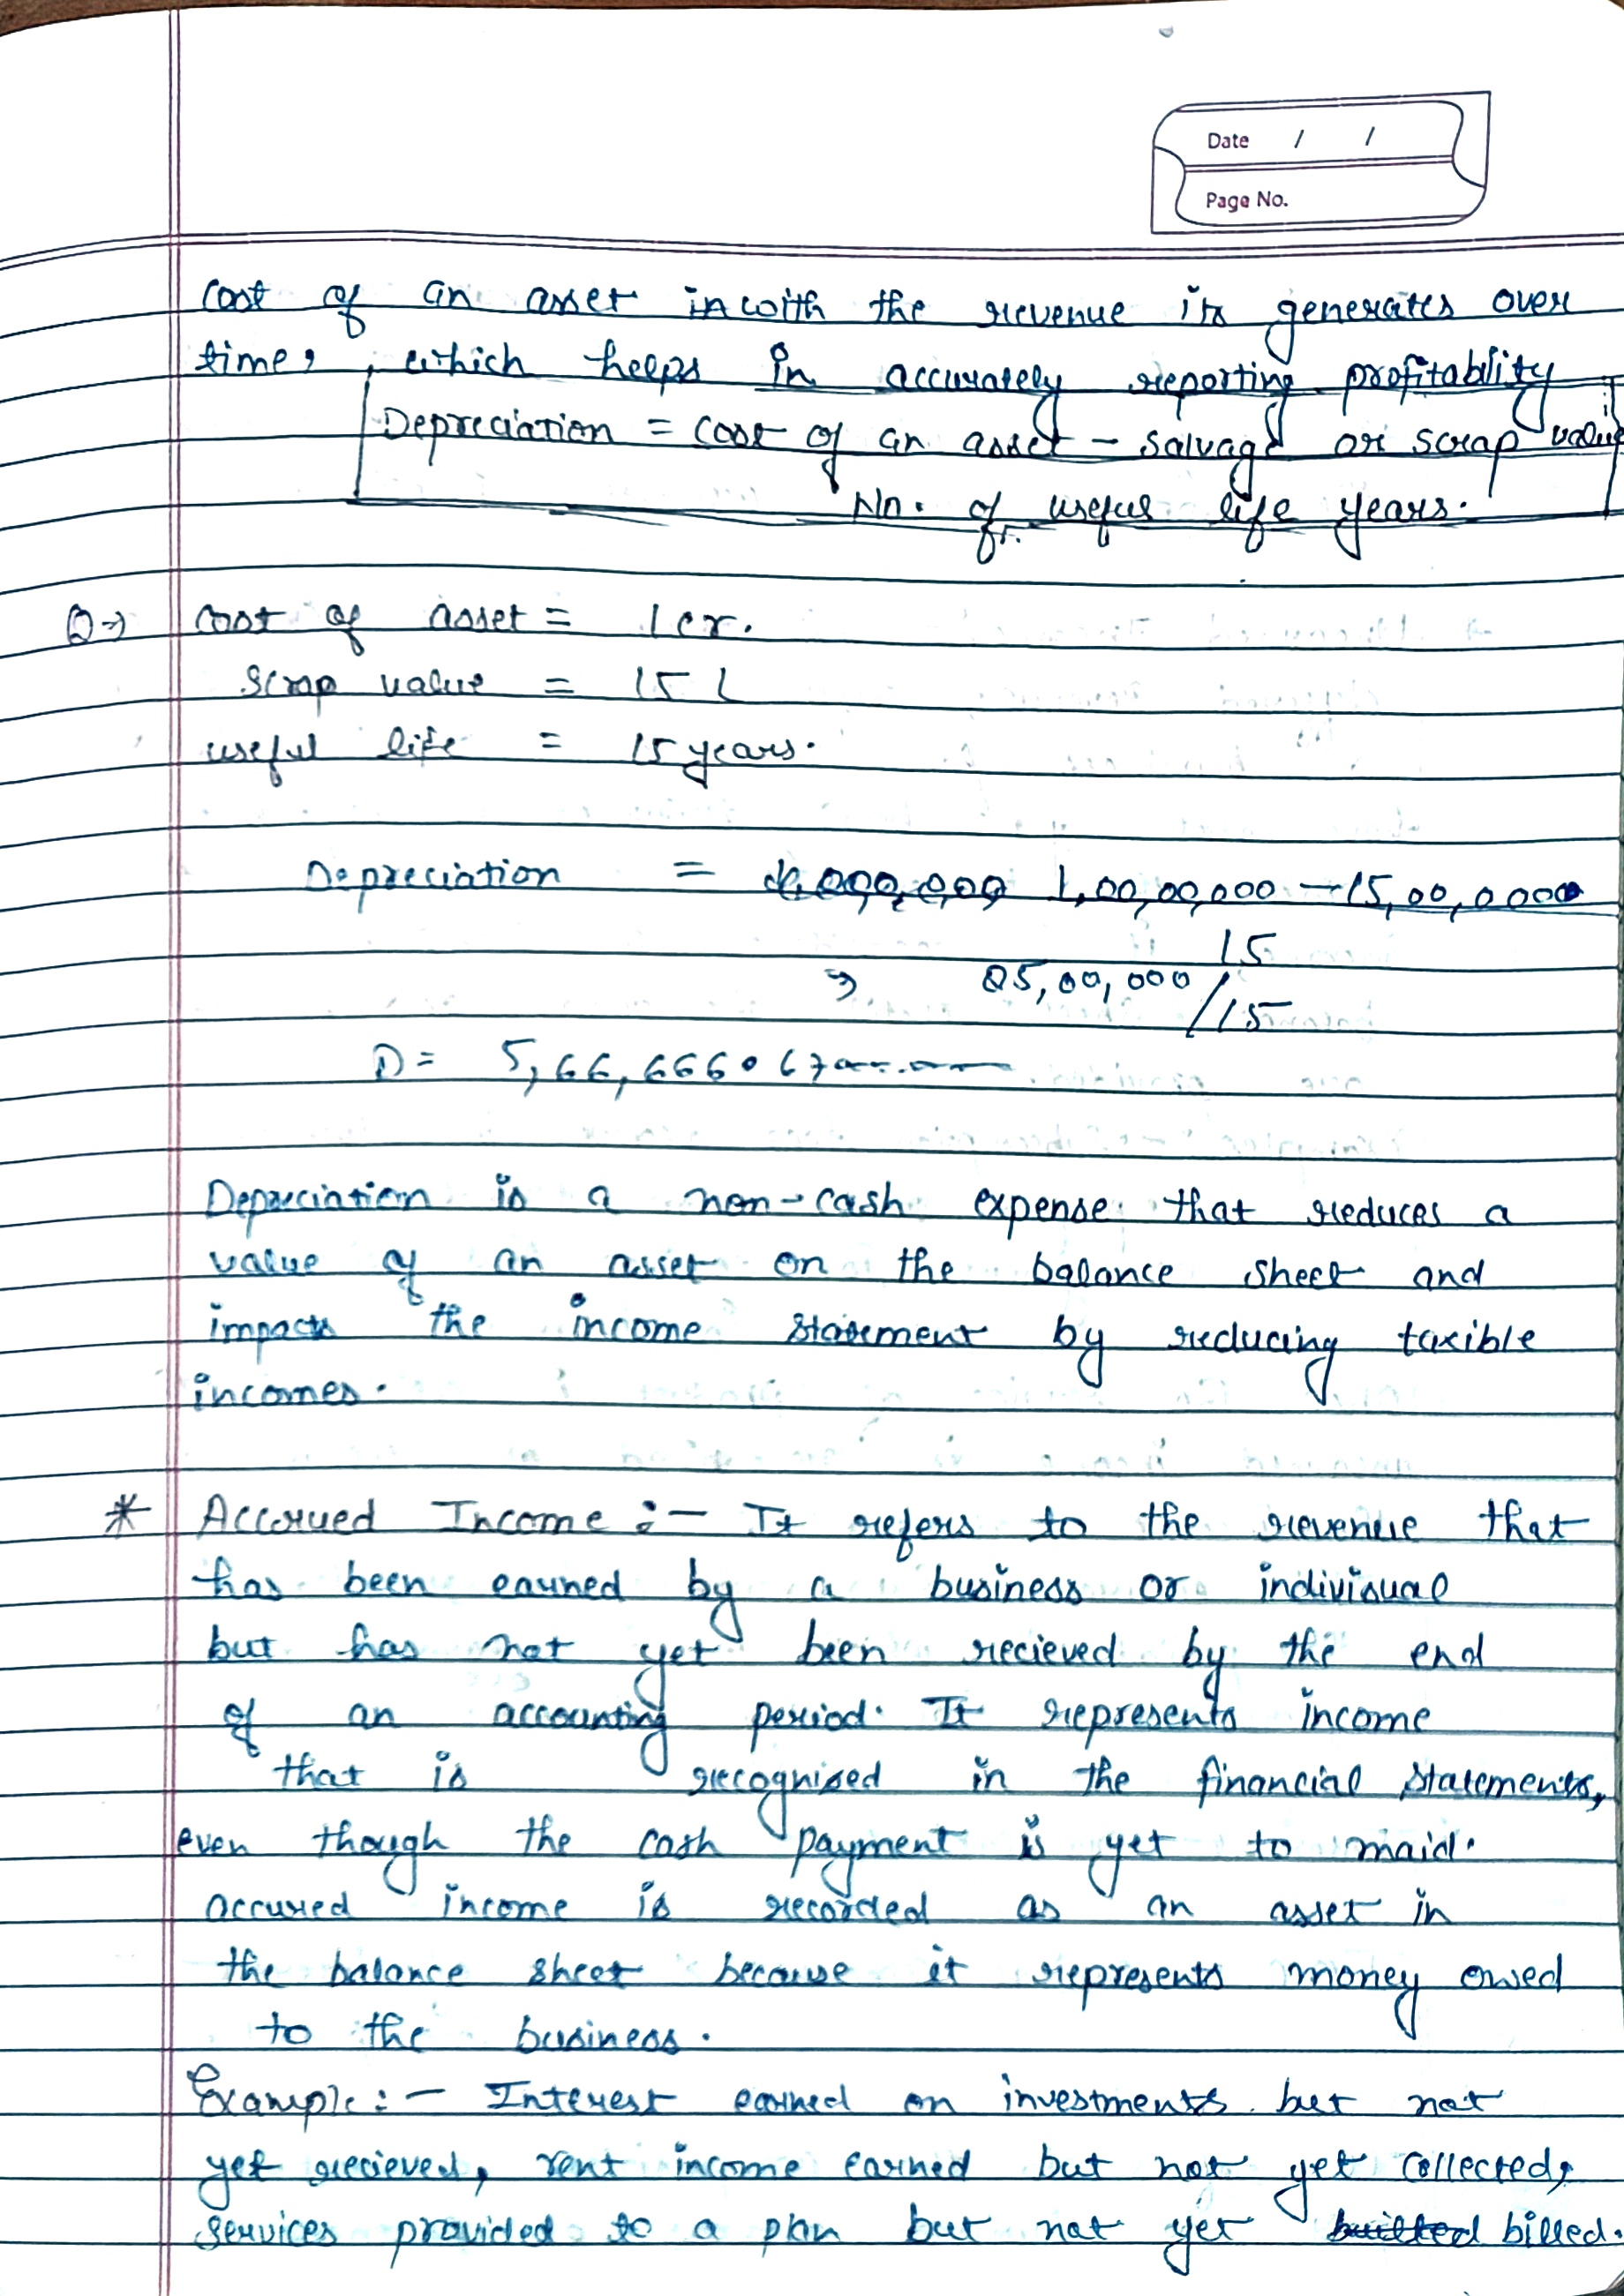 Date / /
Page No.
cost of an asset in with the revenue its generates over
time, which helps in accurately reporting profitability
Depreciation = cost of an asset - salvage or scrap value
No. of useful life years.
Q→ cost of asset = 1 cr.
Scrap value = 15 L
useful life = 15 years.
Depreciation = 1,00,00,000 - 15,00,0000
15
⇒ 85,00,000/15
D = 5,66,666.67
Depreciation is a non-cash expense that reduces a
value of an asset on the balance sheet and
impacts the income statement by reducing taxible
incomes.
* Accrued Income :- It refers to the revenue that
has been earned by a business or indivisual
but has not yet been recieved by the end
of an accounting period. It represents income
that is recognised in the financial statements,
even though the cash payment is yet to maid.
accured income is recorded as an asset in
the balance sheet because it represents money owed
to the business.
Example :- Interest earned on investments but not
yet recieved, rent income earned but not yet collected,
services provided to a plan but not yet billed.